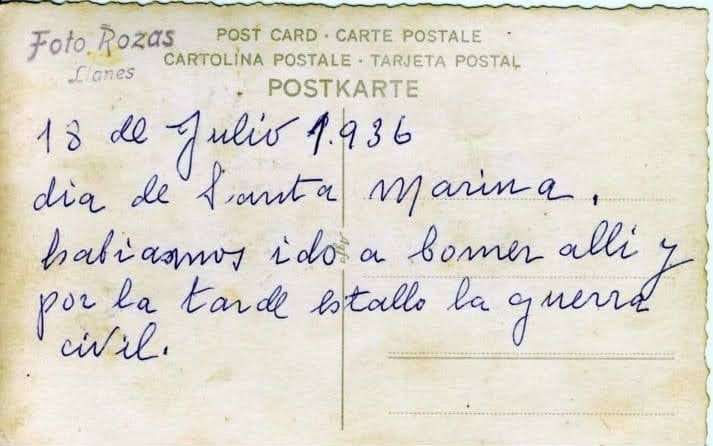 Foto Rozas
Llanes
POST CARD · CARTE POSTALE
CARTOLINA POSTALE · TARJETA POSTAL
POSTKARTE
18 de Julio 1.936
dia de Santa Marina.
habiamos ido a comer alli y
por la tarde estallo la guerra
civil.